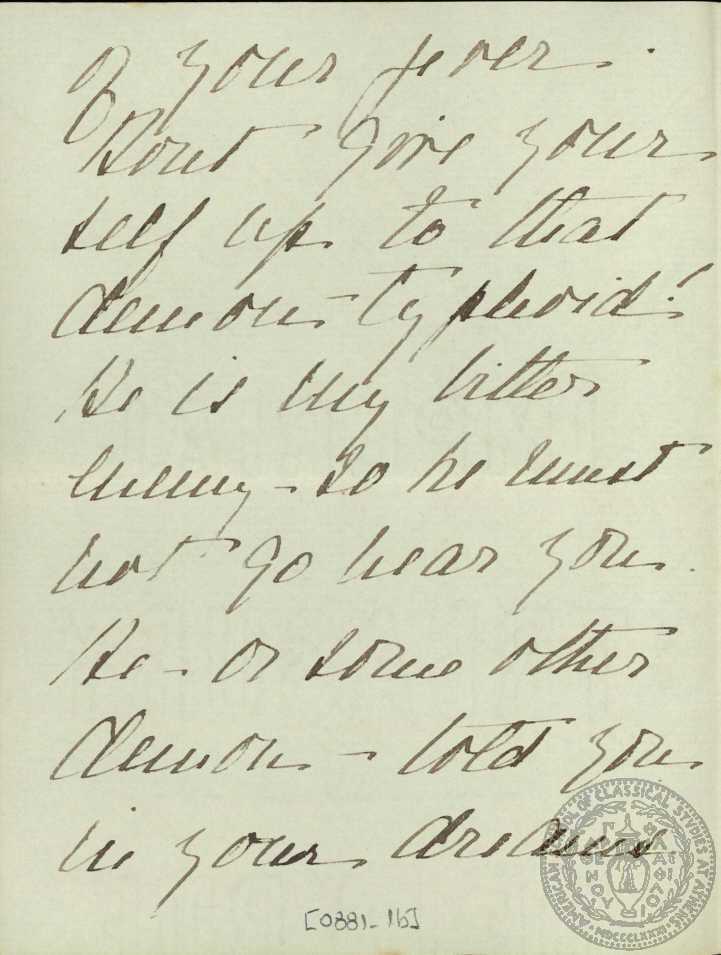 of your fever.
Dont give your
self up to that
demon—typhoid!
He is my bitter
enemy—so he must
not go near you.
He—or some other
demon—told you
in your dreams
[0881-1b]
AMERICAN SCHOOL OF CLASSICAL STUDIES AT ATHENS
MDCCCLXXXI